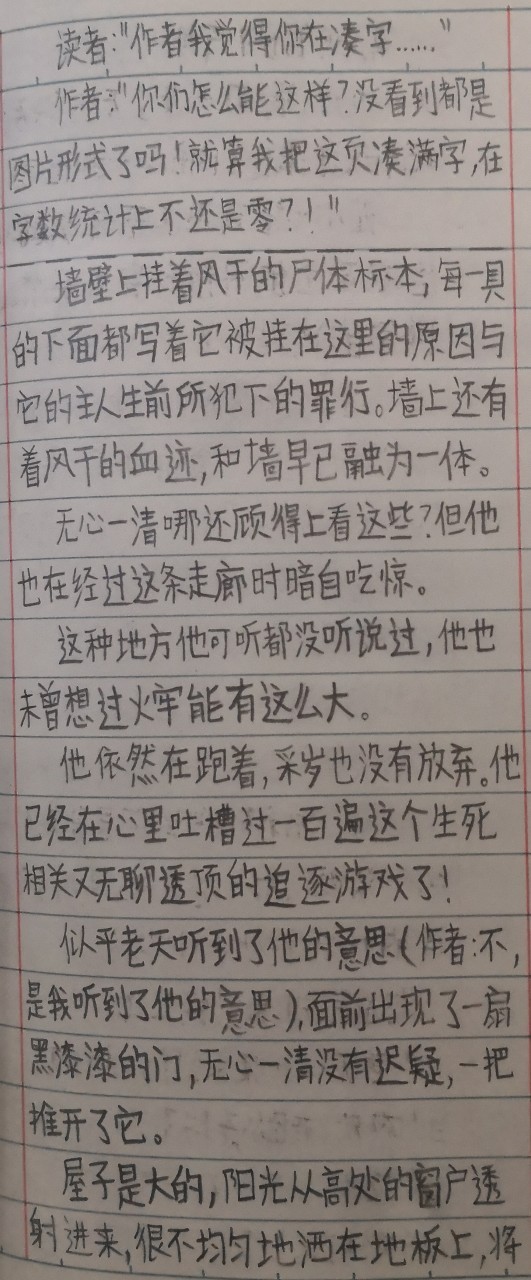 读者:"作者我觉得你在凑字……"
作者:"你们怎么能这样?没看到都是
图片形式了吗!就算我把这页凑满字,在
字数统计上不还是零?!"
墙壁上挂着风干的尸体标本,每一具
的下面都写着它被挂在这里的原因与
它的主人生前所犯下的罪行。墙上还有
着风干的血迹,和墙早已融为一体。
无心一清哪还顾得上看这些?但他
也在经过这条走廊时暗自吃惊。
这种地方他可听都没听说过,他也
未曾想过火牢能有这么大。
他依然在跑着,采岁也没有放弃。他
已经在心里吐槽过一百遍这个生死
相关又无聊透顶的追逐游戏了!
似乎老天听到了他的意思(作者:不,
是我听到了他的意思),面前出现了一扇
黑漆漆的门,无心一清没有迟疑,一把
推开了它。
屋子是大的,阳光从高处的窗户透
射进来,很不均匀地洒在地板上,将